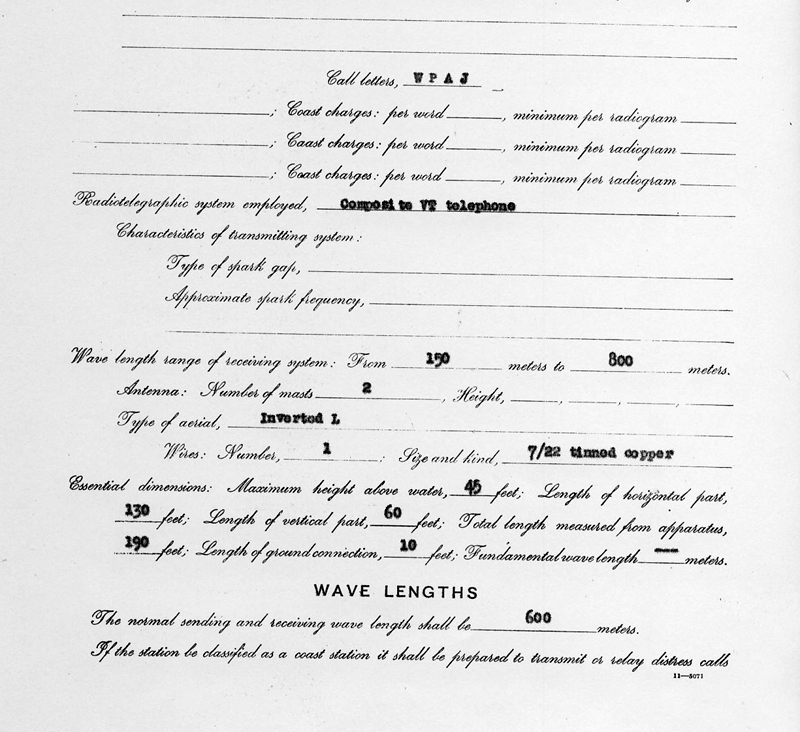 Call letters, W P A J
; Coast charges: per word , minimum per radiogram
; Caast charges: per word , minimum per radiogram
; Coast charges: per word , minimum per radiogram
Radiotelegraphic system employed, Composite VT telephone
Characteristics of transmitting system:
Type of spark gap,
Approximate spark frequency,
Wave length range of receiving system: From 150 meters to 800 meters.
Antenna: Number of masts 2 , Height, , , ,
Type of aerial, Inverted L
Wires: Number, 1 : Size and kind, 7/22 tinned copper
Essential dimensions: Maximum height above water, 45 feet; Length of horizontal part,
130 feet; Length of vertical part, 60 feet; Total length measured from apparatus,
190 feet; Length of ground connection, 10 feet; Fundamental wave length --- meters.
WAVE LENGTHS
The normal sending and receiving wave length shall be 600 meters.
If the station be classified as a coast station it shall be prepared to transmit or relay distress calls
11—5071